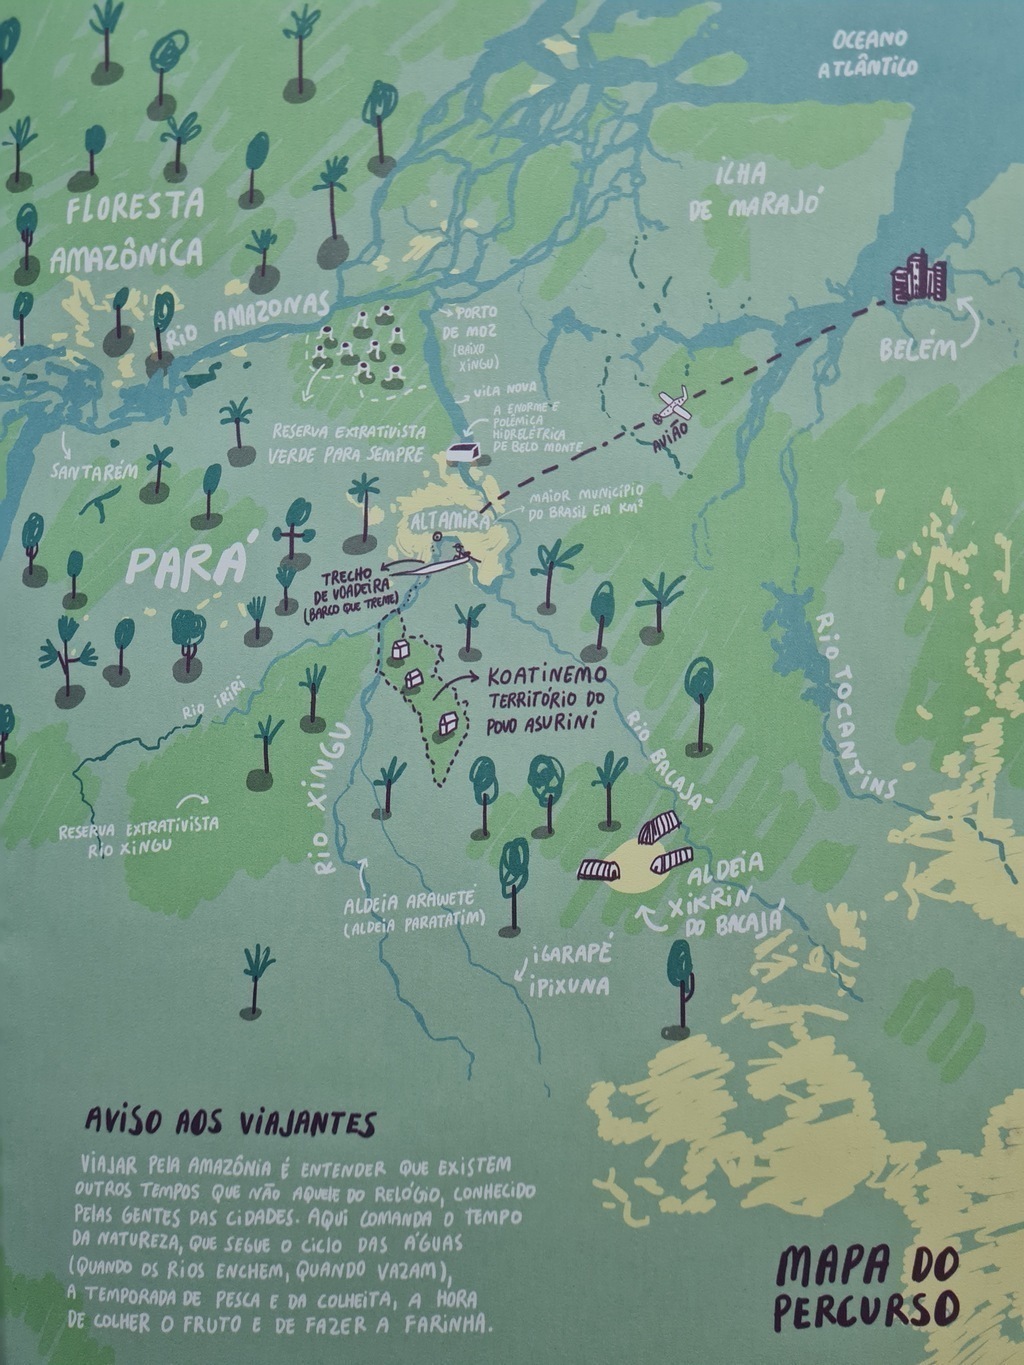 OCEANO
ATLÂNTICO
ILHA
DE MARAJÓ
FLORESTA
AMAZÔNICA
RIO AMAZONAS
BELÉM
PORTO
DE MOZ
(BAIXO
XINGU)
VILA NOVA
A ENORME E
POLÊMICA
HIDRELÉTRICA
DE BELO MONTE
AVIÃO
RESERVA EXTRATIVISTA
VERDE PARA SEMPRE
SANTARÉM
MAIOR MUNICÍPIO
DO BRASIL EM KM²
ALTAMIRA
PARÁ
TRECHO
DE VOADEIRA
(BARCO QUE TREME)
KOATINEMO
TERRITÓRIO DO
POVO ASURINI
RIO IRIRI
RIO XINGU
RIO BACAJÁ
RIO TOCANTINS
RESERVA EXTRATIVISTA
RIO XINGU
ALDEIA ARAWETÉ
(ALDEIA PARATATIM)
ALDEIA
XIKRIN
DO BACAJÁ
IGARAPÉ
IPIXUNA
AVISO AOS VIAJANTES
VIAJAR PELA AMAZÔNIA É ENTENDER QUE EXISTEM
OUTROS TEMPOS QUE NÃO AQUELE DO RELÓGIO, CONHECIDO
PELAS GENTES DAS CIDADES. AQUI COMANDA O TEMPO
DA NATUREZA, QUE SEGUE O CICLO DAS ÁGUAS
(QUANDO OS RIOS ENCHEM, QUANDO VAZAM),
A TEMPORADA DE PESCA E DA COLHEITA, A HORA
DE COLHER O FRUTO E DE FAZER A FARINHA.
MAPA DO
PERCURSO